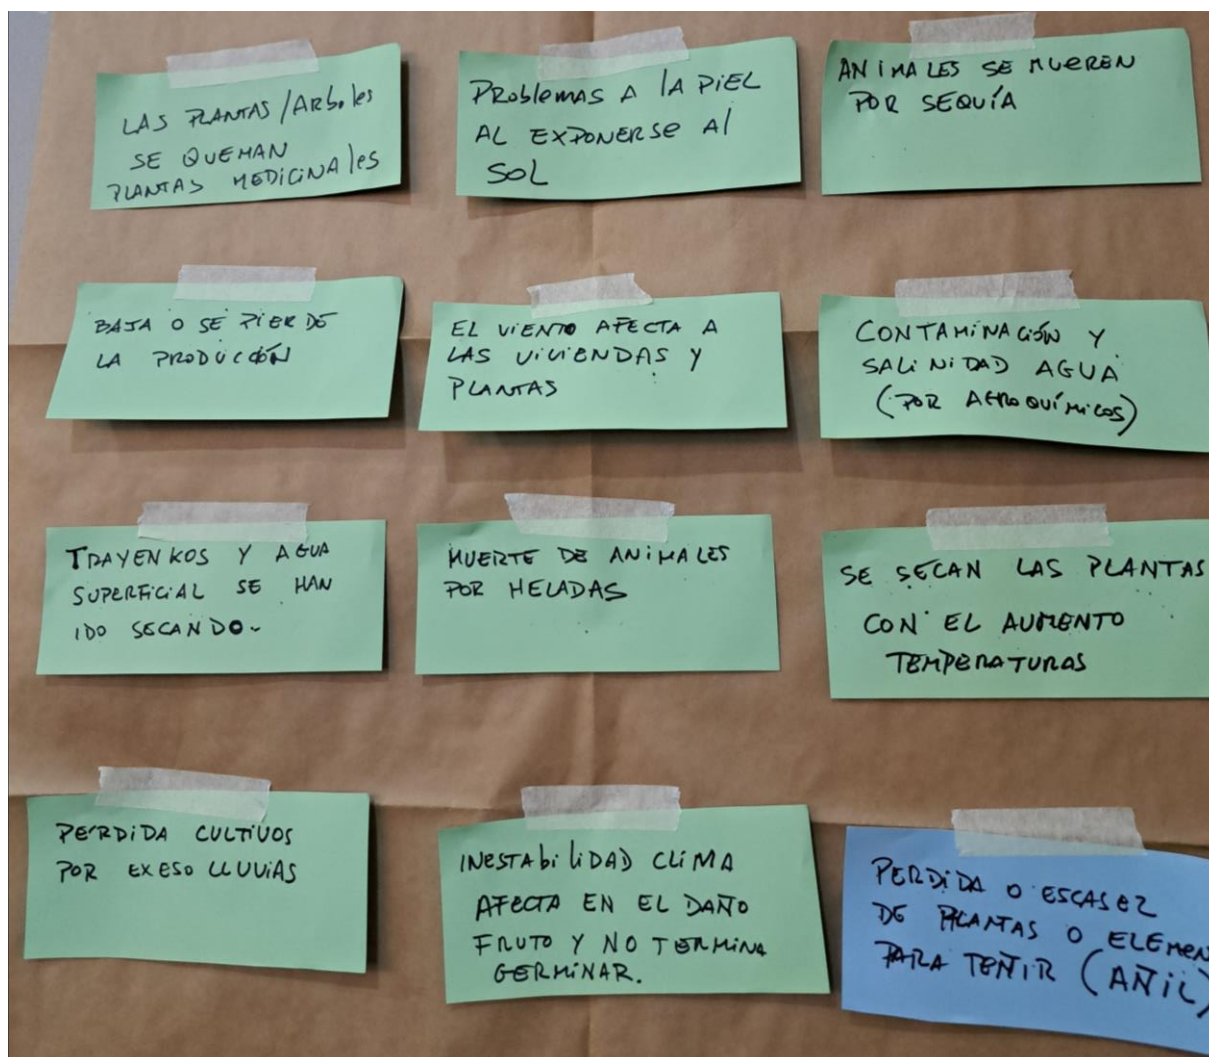 LAS PLANTAS/Arboles
SE QUEMAN
PLANTAS MEDICINAles
PRoblemas A lA PiEL
AL EXPONERSE Al
SOL
ANiMALES SE MUEREN
POR SEQUÍA
BAJA O SE PIERDE
LA PRODUCCIÓN
EL VIENTO AFECTA A
LAS VIVIENDAS Y
PLANTAS
CONTAMINACIÓN Y
SALiNiDAD AGUA
(POR AGROQUÍMICOS)
TRAYENKOS Y AGUA
SUPERFICIAL SE HAN
IDO SECANDO.
MUERTE DE ANIMALES
POR HELADAS
SE SECAN LAS PLANTAS
CON EL AUMENTO
TEMPERATURAS
PERDiDA CULTIVOS
POR EXESO LLUViAS
INESTAbiliDAD CLiMA
AFECTA EN EL DAÑO
FRUTO Y NO TERMINA
GERMINAR.
PERDiDA O ESCASEZ
DE PLANTAS O ELEMEN
PARA TEÑIR (AÑIL)